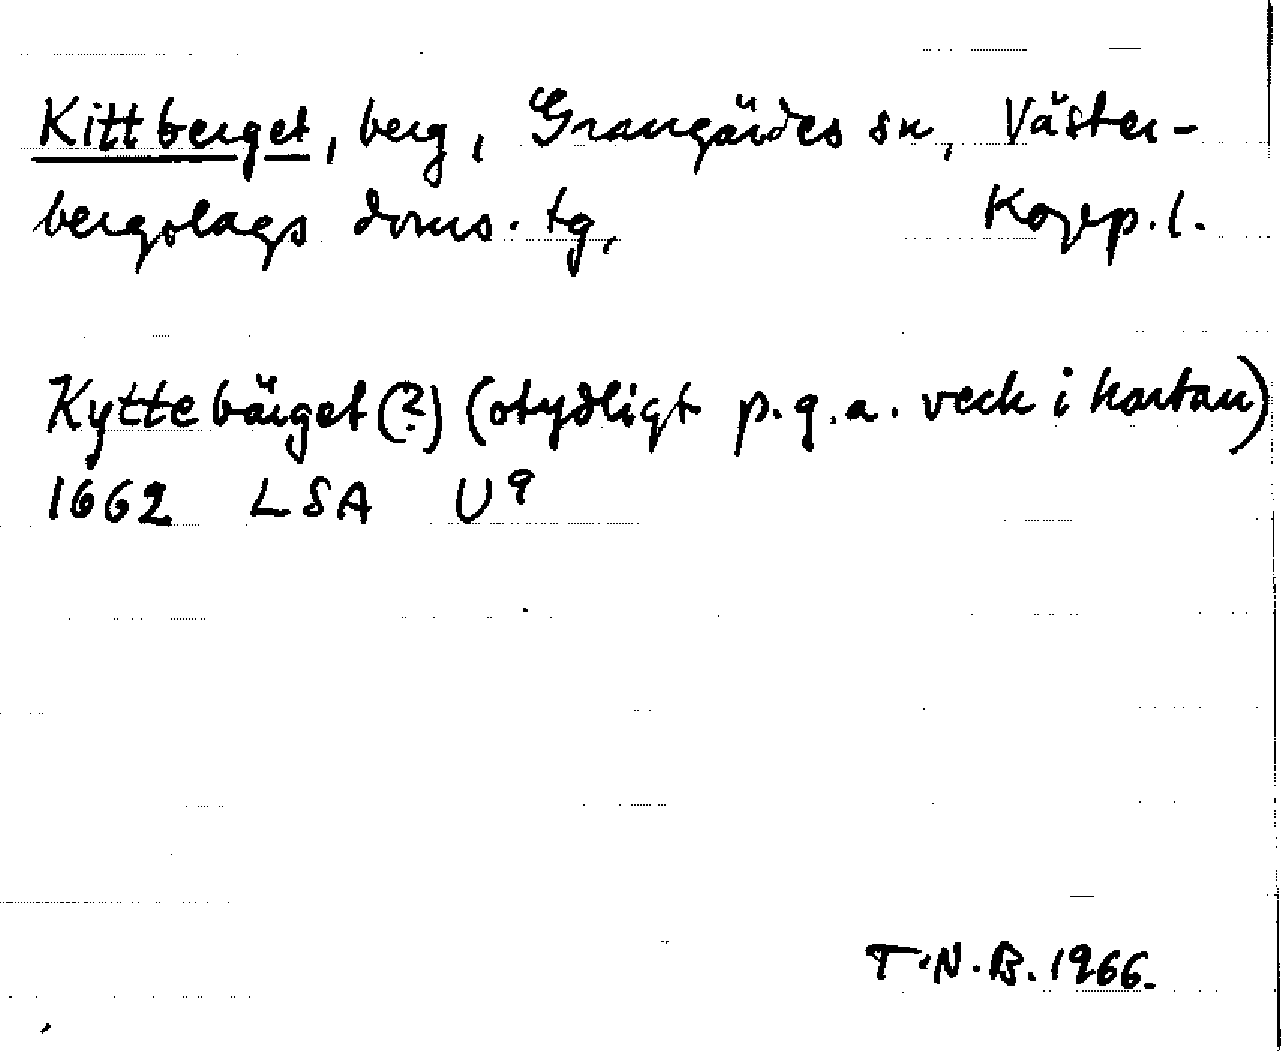 Kittberget, berg, Grangärdes sn, Väster-
bergslags doms. tg, Kopp. l.
Kyttebärget (?) (otydligt p.g.a. veck i kartan)
1662 LSA U9
T.N.B. 1966.